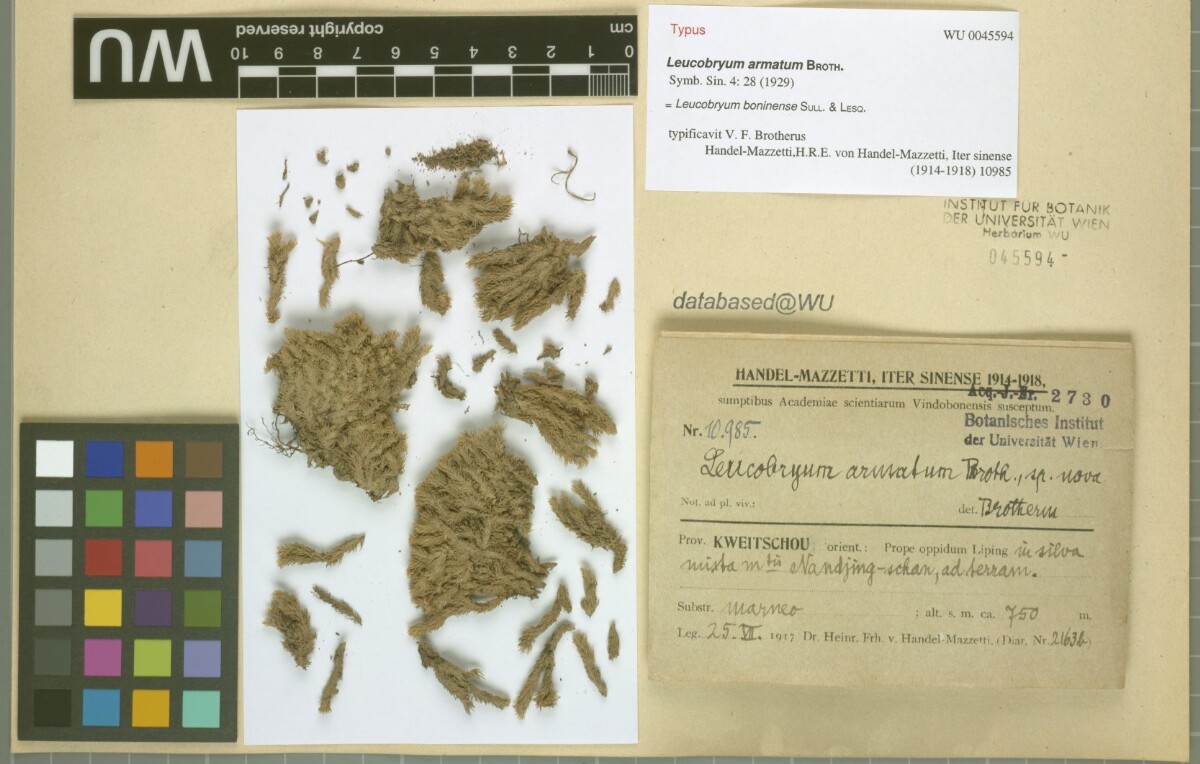 WU
copyright reserved
cm
10 9 8 7 6 5 4 3 2 1 0
Typus
WU 0045594
Leucobryum armatum BROTH.
Symb. Sin. 4: 28 (1929)
= Leucobryum boninense SULL. & LESQ.
typificavit V. F. Brotherus
Handel-Mazzetti,H.R.E. von Handel-Mazzetti, Iter sinense
(1914-1918) 10985
INSTITUT FÜR BOTANIK
DER UNIVERSITÄT WIEN
Herbarium WU
045594-
databased@WU
HANDEL-MAZZETTI, ITER SINENSE 1914-1918,
Acq.-J.-Nr. 2730
sumptibus Academiae scientiarum Vindobonensis susceptum.
Botanisches Institut
der Universität Wien
Nr. 10.985.
Leucobryum armatum Broth., sp. nova
Not. ad pl. viv.:
det. Brotherus
Prov. KWEITSCHOU orient.: Prope oppidum Liping in silva
mixta mtis Nandjing-schan, ad terram.
Substr. marneo ; alt. s. m. ca. 750 m.
Leg. 25. VII. 1917 Dr. Heinr. Frh. v. Handel-Mazzetti. (Diar. Nr. 2163b)